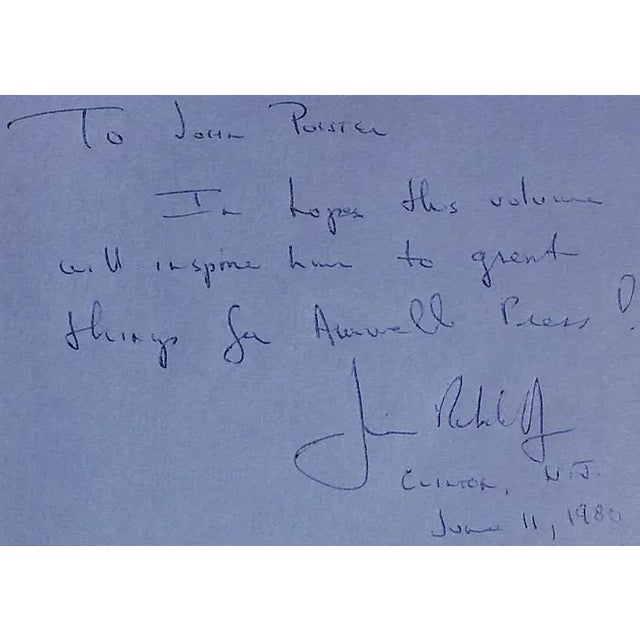 To John
In hopes this volume
will inspire him to great
things for Amwell Press!
Jim
Clinton, N.J.
June 11, 1980